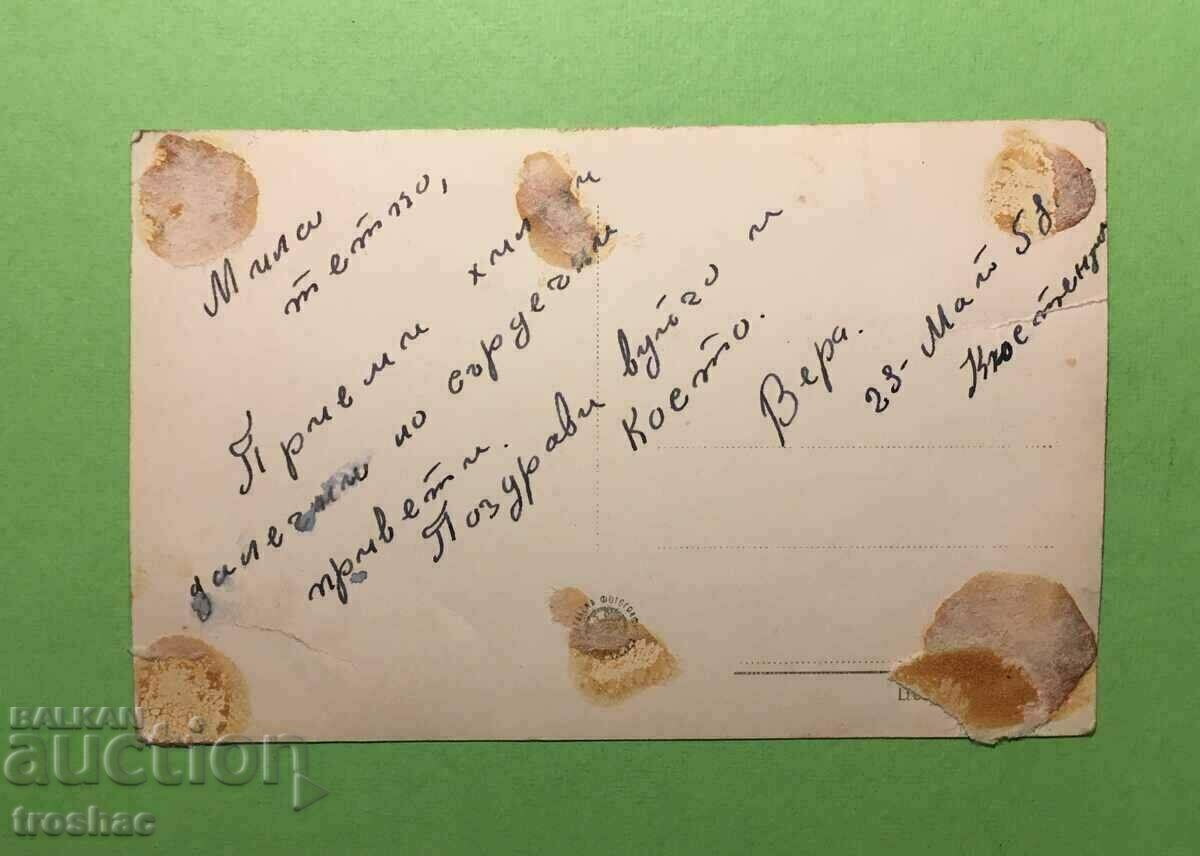 Мила
тетю,
Приеми хиляди
далечни но сърдечни
привети.
Поздрави вуйчо и
Косто.
Вера.
23-Май 58
Кюстендил
BALKAN
auction
troshac